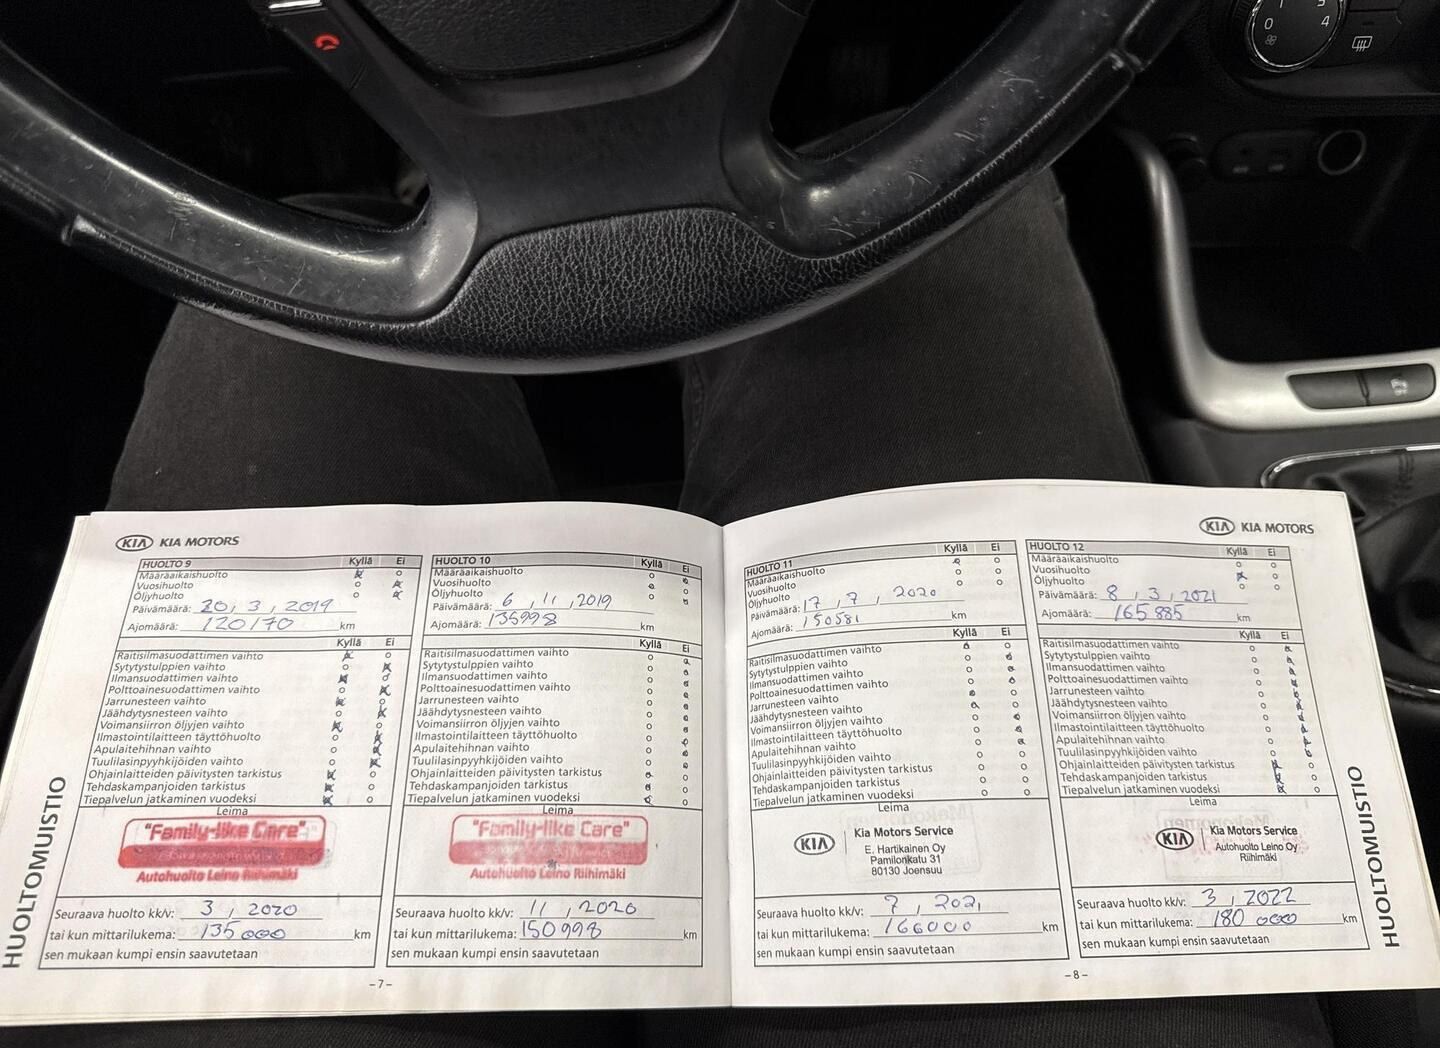 1
0
4
5
KIA KIA MOTORS
HUOLTO 9 Kyllä Ei
Määräaikaishuolto
Vuosihuolto
Öljyhuolto
Päivämäärä: 20, 3, 2019
Ajomäärä: 120170 km
Kyllä Ei
Raitisilmasuodattimen vaihto
Sytytystulppien vaihto
Ilmansuodattimen vaihto
Polttoainesuodattimen vaihto
Jarrunesteen vaihto
Jäähdytysnesteen vaihto
Voimansiirron öljyjen vaihto
Ilmastointilaitteen täyttöhuolto
Apulaitehihnan vaihto
Tuulilasinpyyhkijöiden vaihto
Ohjainlaitteiden päivitysten tarkistus
Tehdaskampanjoiden tarkistus
Tiepalvelun jatkaminen vuodeksi
Leima
"Family-like Care"
Autohuolto Leino Riihimäki
Seuraava huolto kk/v: 3, 2020
tai kun mittarilukema: 135000 km
sen mukaan kumpi ensin saavutetaan
HUOLTO 10 Kyllä Ei
Määräaikaishuolto
Vuosihuolto
Öljyhuolto
Päivämäärä: 6, 11, 2019
Ajomäärä: 135998 km
Kyllä Ei
Raitisilmasuodattimen vaihto
Sytytystulppien vaihto
Ilmansuodattimen vaihto
Polttoainesuodattimen vaihto
Jarrunesteen vaihto
Jäähdytysnesteen vaihto
Voimansiirron öljyjen vaihto
Ilmastointilaitteen täyttöhuolto
Apulaitehihnan vaihto
Tuulilasinpyyhkijöiden vaihto
Ohjainlaitteiden päivitysten tarkistus
Tehdaskampanjoiden tarkistus
Tiepalvelun jatkaminen vuodeksi
Leima
"Family-like Care"
Autohuolto Leino Riihimäki
Seuraava huolto kk/v: 11, 2020
tai kun mittarilukema: 150998 km
sen mukaan kumpi ensin saavutetaan
HUOLTOMUISTIO
-7-
KIA KIA MOTORS
HUOLTO 11 Kyllä Ei
Määräaikaishuolto
Vuosihuolto
Öljyhuolto
Päivämäärä: 17, 7, 2020
Ajomäärä: 150581 km
Kyllä Ei
Raitisilmasuodattimen vaihto
Sytytystulppien vaihto
Ilmansuodattimen vaihto
Polttoainesuodattimen vaihto
Jarrunesteen vaihto
Jäähdytysnesteen vaihto
Voimansiirron öljyjen vaihto
Ilmastointilaitteen täyttöhuolto
Apulaitehihnan vaihto
Tuulilasinpyyhkijöiden vaihto
Ohjainlaitteiden päivitysten tarkistus
Tehdaskampanjoiden tarkistus
Tiepalvelun jatkaminen vuodeksi
Leima
KIA Kia Motors Service
E. Hartikainen Oy
Pamilonkatu 31
80130 Joensuu
Seuraava huolto kk/v: 7, 2021
tai kun mittarilukema: 166000 km
sen mukaan kumpi ensin saavutetaan
HUOLTO 12 Kyllä Ei
Määräaikaishuolto
Vuosihuolto
Öljyhuolto
Päivämäärä: 8, 3, 2021
Ajomäärä: 165885 km
Kyllä Ei
Raitisilmasuodattimen vaihto
Sytytystulppien vaihto
Ilmansuodattimen vaihto
Polttoainesuodattimen vaihto
Jarrunesteen vaihto
Jäähdytysnesteen vaihto
Voimansiirron öljyjen vaihto
Ilmastointilaitteen täyttöhuolto
Apulaitehihnan vaihto
Tuulilasinpyyhkijöiden vaihto
Ohjainlaitteiden päivitysten tarkistus
Tehdaskampanjoiden tarkistus
Tiepalvelun jatkaminen vuodeksi
Leima
KIA Kia Motors Service
Autohuolto Leino Oy
Riihimäki
Seuraava huolto kk/v: 3, 2022
tai kun mittarilukema: 180 000 km
sen mukaan kumpi ensin saavutetaan
HUOLTOMUISTIO
-8-